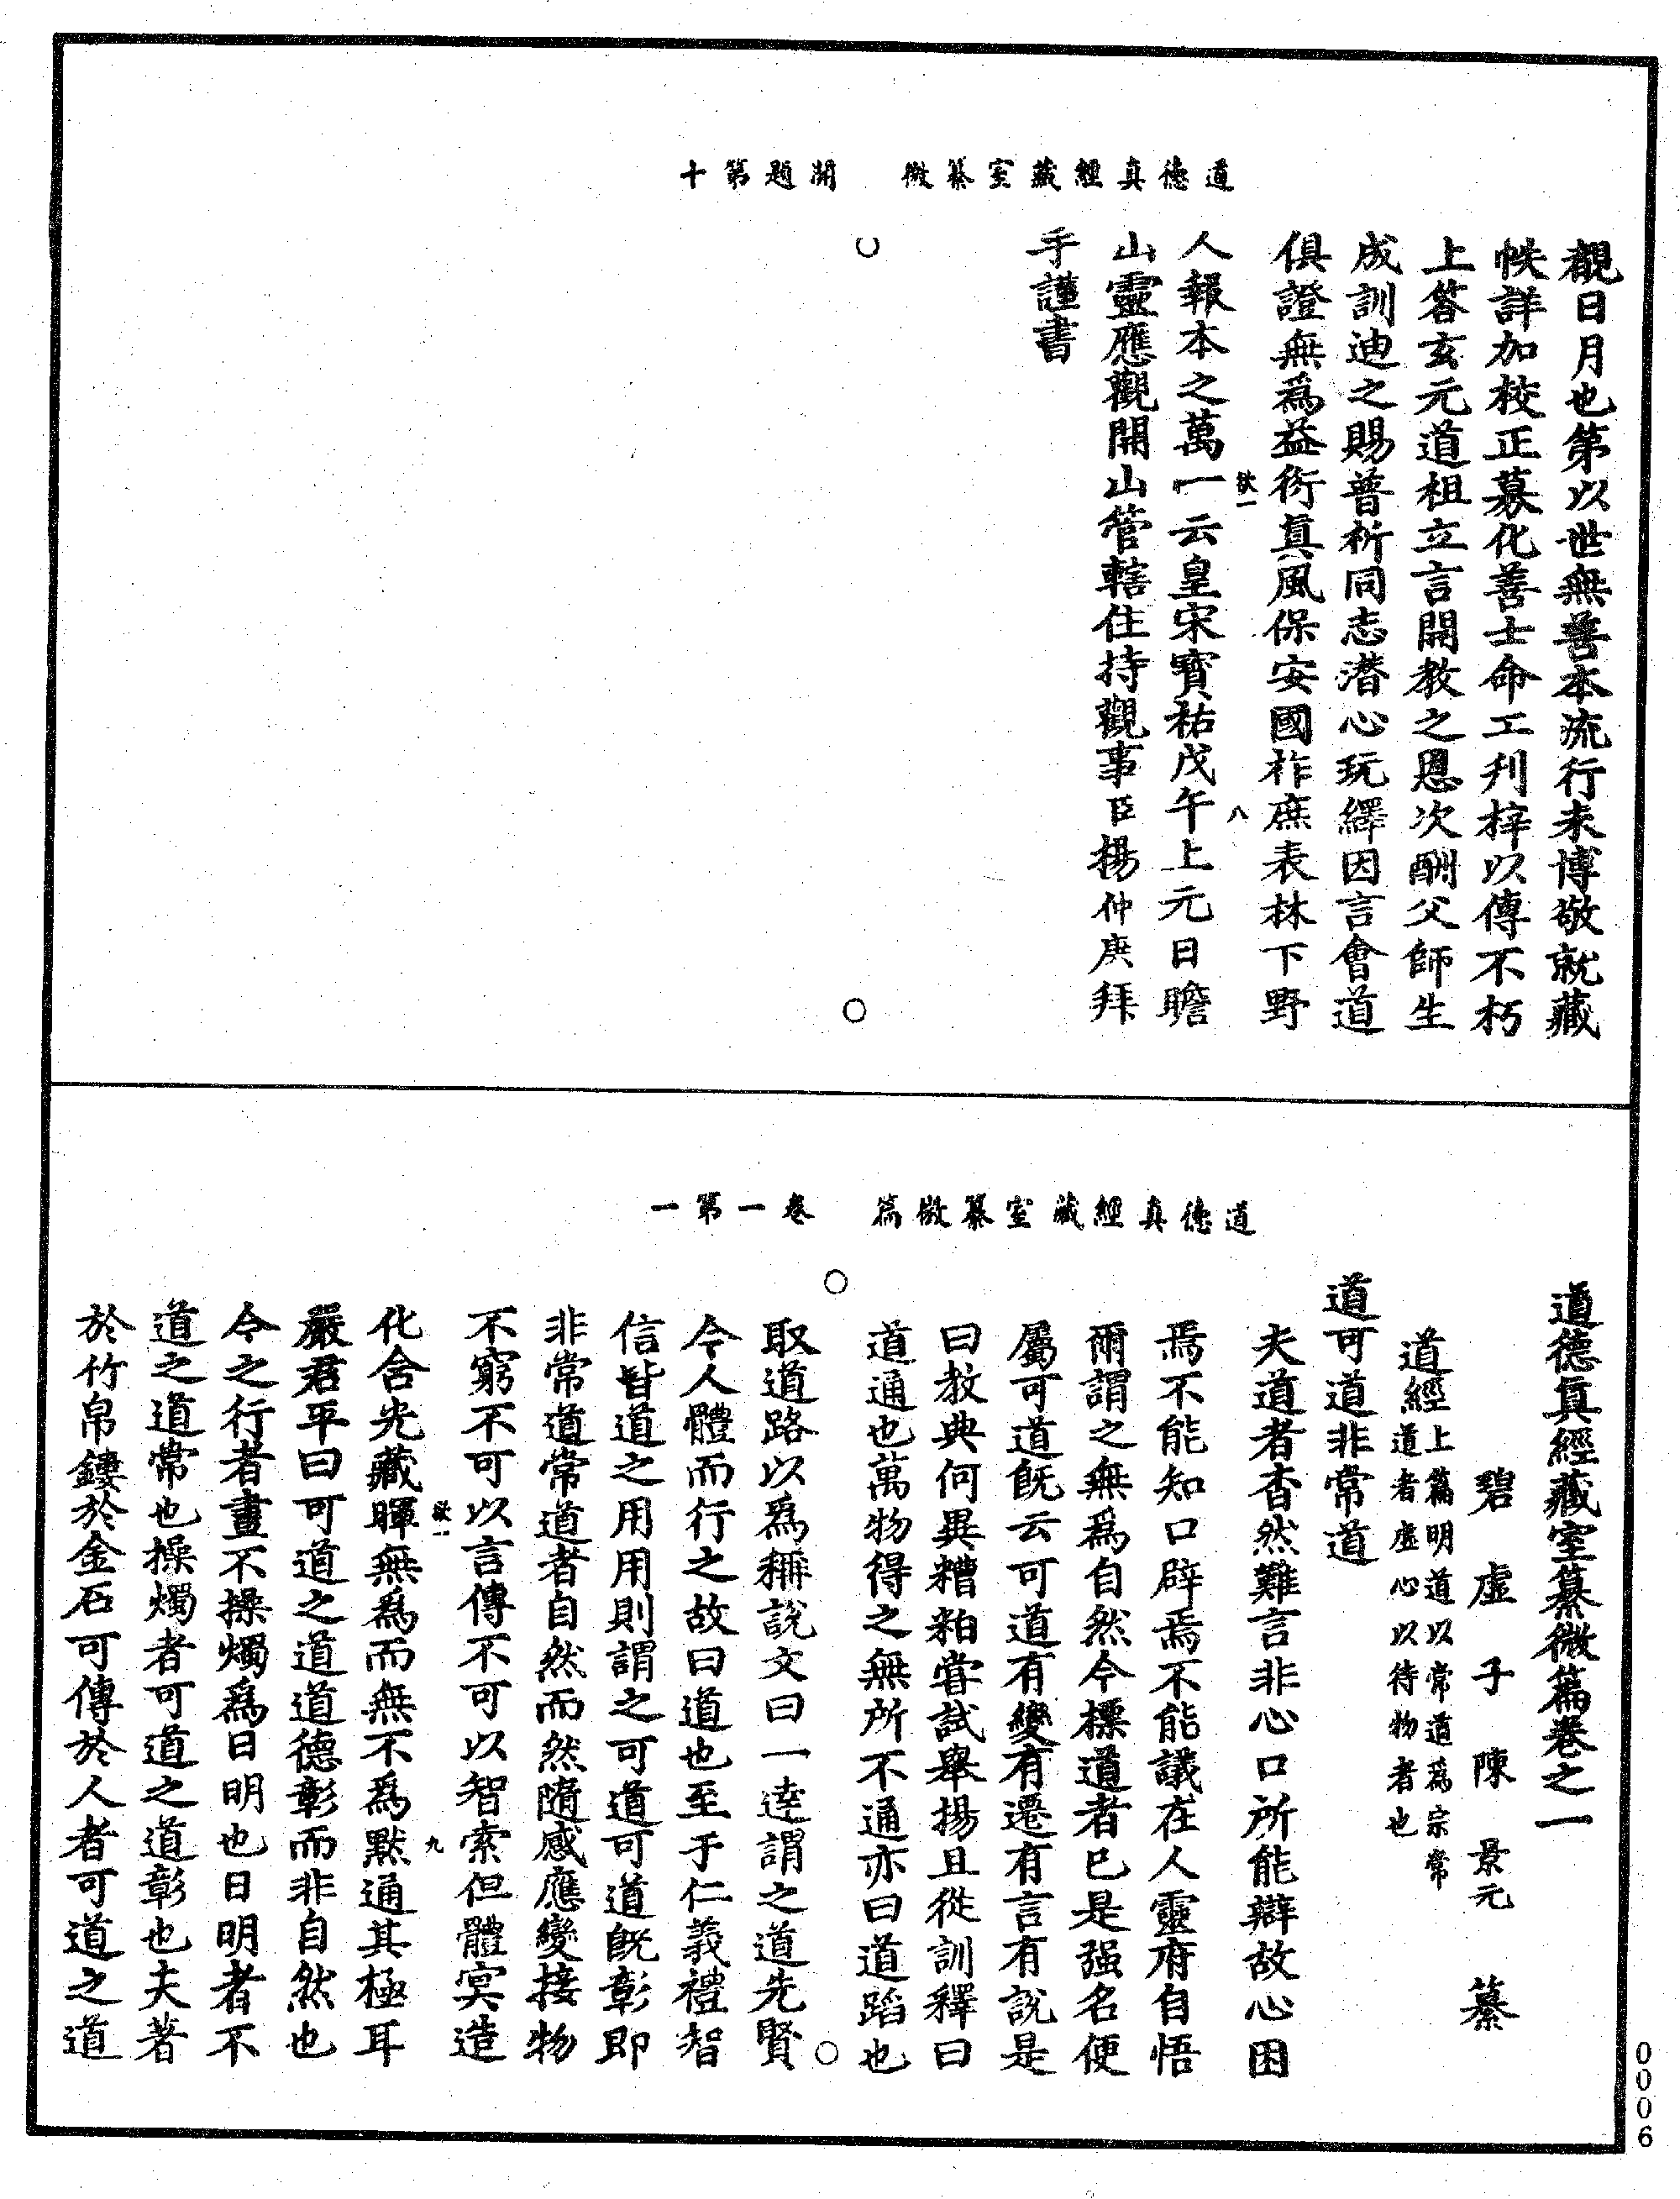 道德真經藏室纂微　開題第十
覩日月也第以世無善本流行未博敬就藏
帙詳加校正募化善士命工刋梓以傳不朽
上答玄元道祖立言開教之恩次酬父師生
成訓迪之賜普祈同志潛心玩繹因言會道
俱證無爲益衍眞風保安國祚庶表林下野
欲一　八
人報本之萬一云皇宋寳祐戊午上元日瞻
山靈應觀開山管轄住持觀事臣楊仲庚拜
手謹書
道德真經藏室纂微篇　卷一第一
道德眞經藏室纂微篇卷之一
碧虛子陳景元纂
道經上篇明道以常道爲宗常
道者虛心以待物者也
道可道非常道
夫道者杳然難言非心口所能辯故心困
焉不能知口辟焉不能議在人靈府自悟
爾謂之無爲自然今標道者已是强名便
屬可道旣云可道有變有遷有言有說是
曰教典何異糟粕甞試舉揚且從訓釋曰
道通也萬物得之無所不通亦曰道蹈也
取道路以爲稱說文曰一逹謂之道先賢
令人體而行之故曰道也至于仁義禮智
信皆道之用用則謂之可道可道旣彰即
非常道常道者自然而然隨感應變接物
不窮不可以言傳不可以智索但體冥造
欲一　九
化含光藏暉無爲而無不爲默通其極耳
嚴君平曰可道之道道德彰而非自然也
今之行者晝不操燭爲日明也日明者不
道之道常也操燭者可道之道彰也夫著
於竹帛鏤於金石可傳於人者可道之道
0006